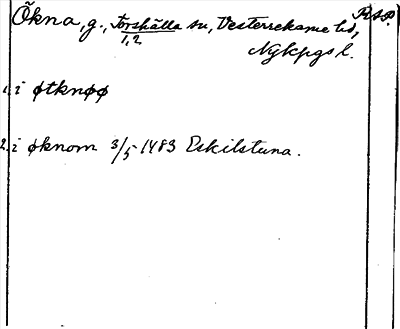 Ökna, g., Torshälla sn, Vesterrekarne hd,
1,2
Nykpgs l.
1. i øtknøø
2. i øknom 3/5 1483 Eskilstuna.